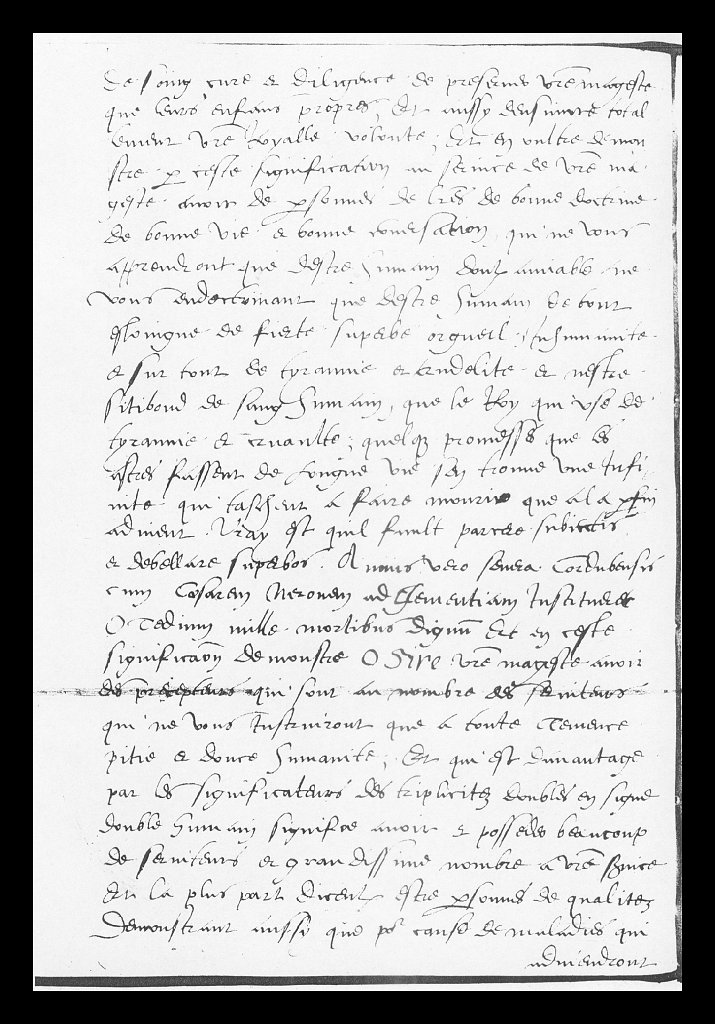 de soing cure et diligence de preserver vre mageste
que leurs enfans propres, Et aussy densuivre total
lement vre Royalle volunte, Et en oultre demon
stre p ceste signification au service de vre ma
geste avoir de psonnes de lres de bonne doctrine
de bonne vie et bonne conversation, qui ne vous
apprendront que destre humain doulx amiable ne
vous endoctrinant que destre humain de tout
esloingne de fierte superbe orgueil, Inhumanite
et sur tout de tyrannie et crudelite et nestre
sitibond de sang humain, que le Roy qui use de
tyrannie et cruaulte, quelq promesses que les
astres fassent de longue vie sen trouve une Infi
nite qui taschent a faire mourir que a la pfin
advient. Vray est quil fault parcere subiectis
et debellare superbos. A quis vero seneca Cordubensis
cum Cesarem Neronem ad Clementiam Institueret
O Tedium mille mortibus dignu Et en ceste
significaon demonstre O Sire vre mageste avoir
des precepteurs qui sont au nombre des serviteurs
qui ne vous Instruiront que a toute Clemence
pitie et doulce humanite, Et qui est davantage
par les significateurs des triplicitez doubles en signe
double humain signifie avoir et posseder beaucoup
de serviteurs et grandissime nombre a vre service
Et la plus part diceulx estre psonnes de qualitez
Demonstrant aussi que p cause de maladies qui
adviendront